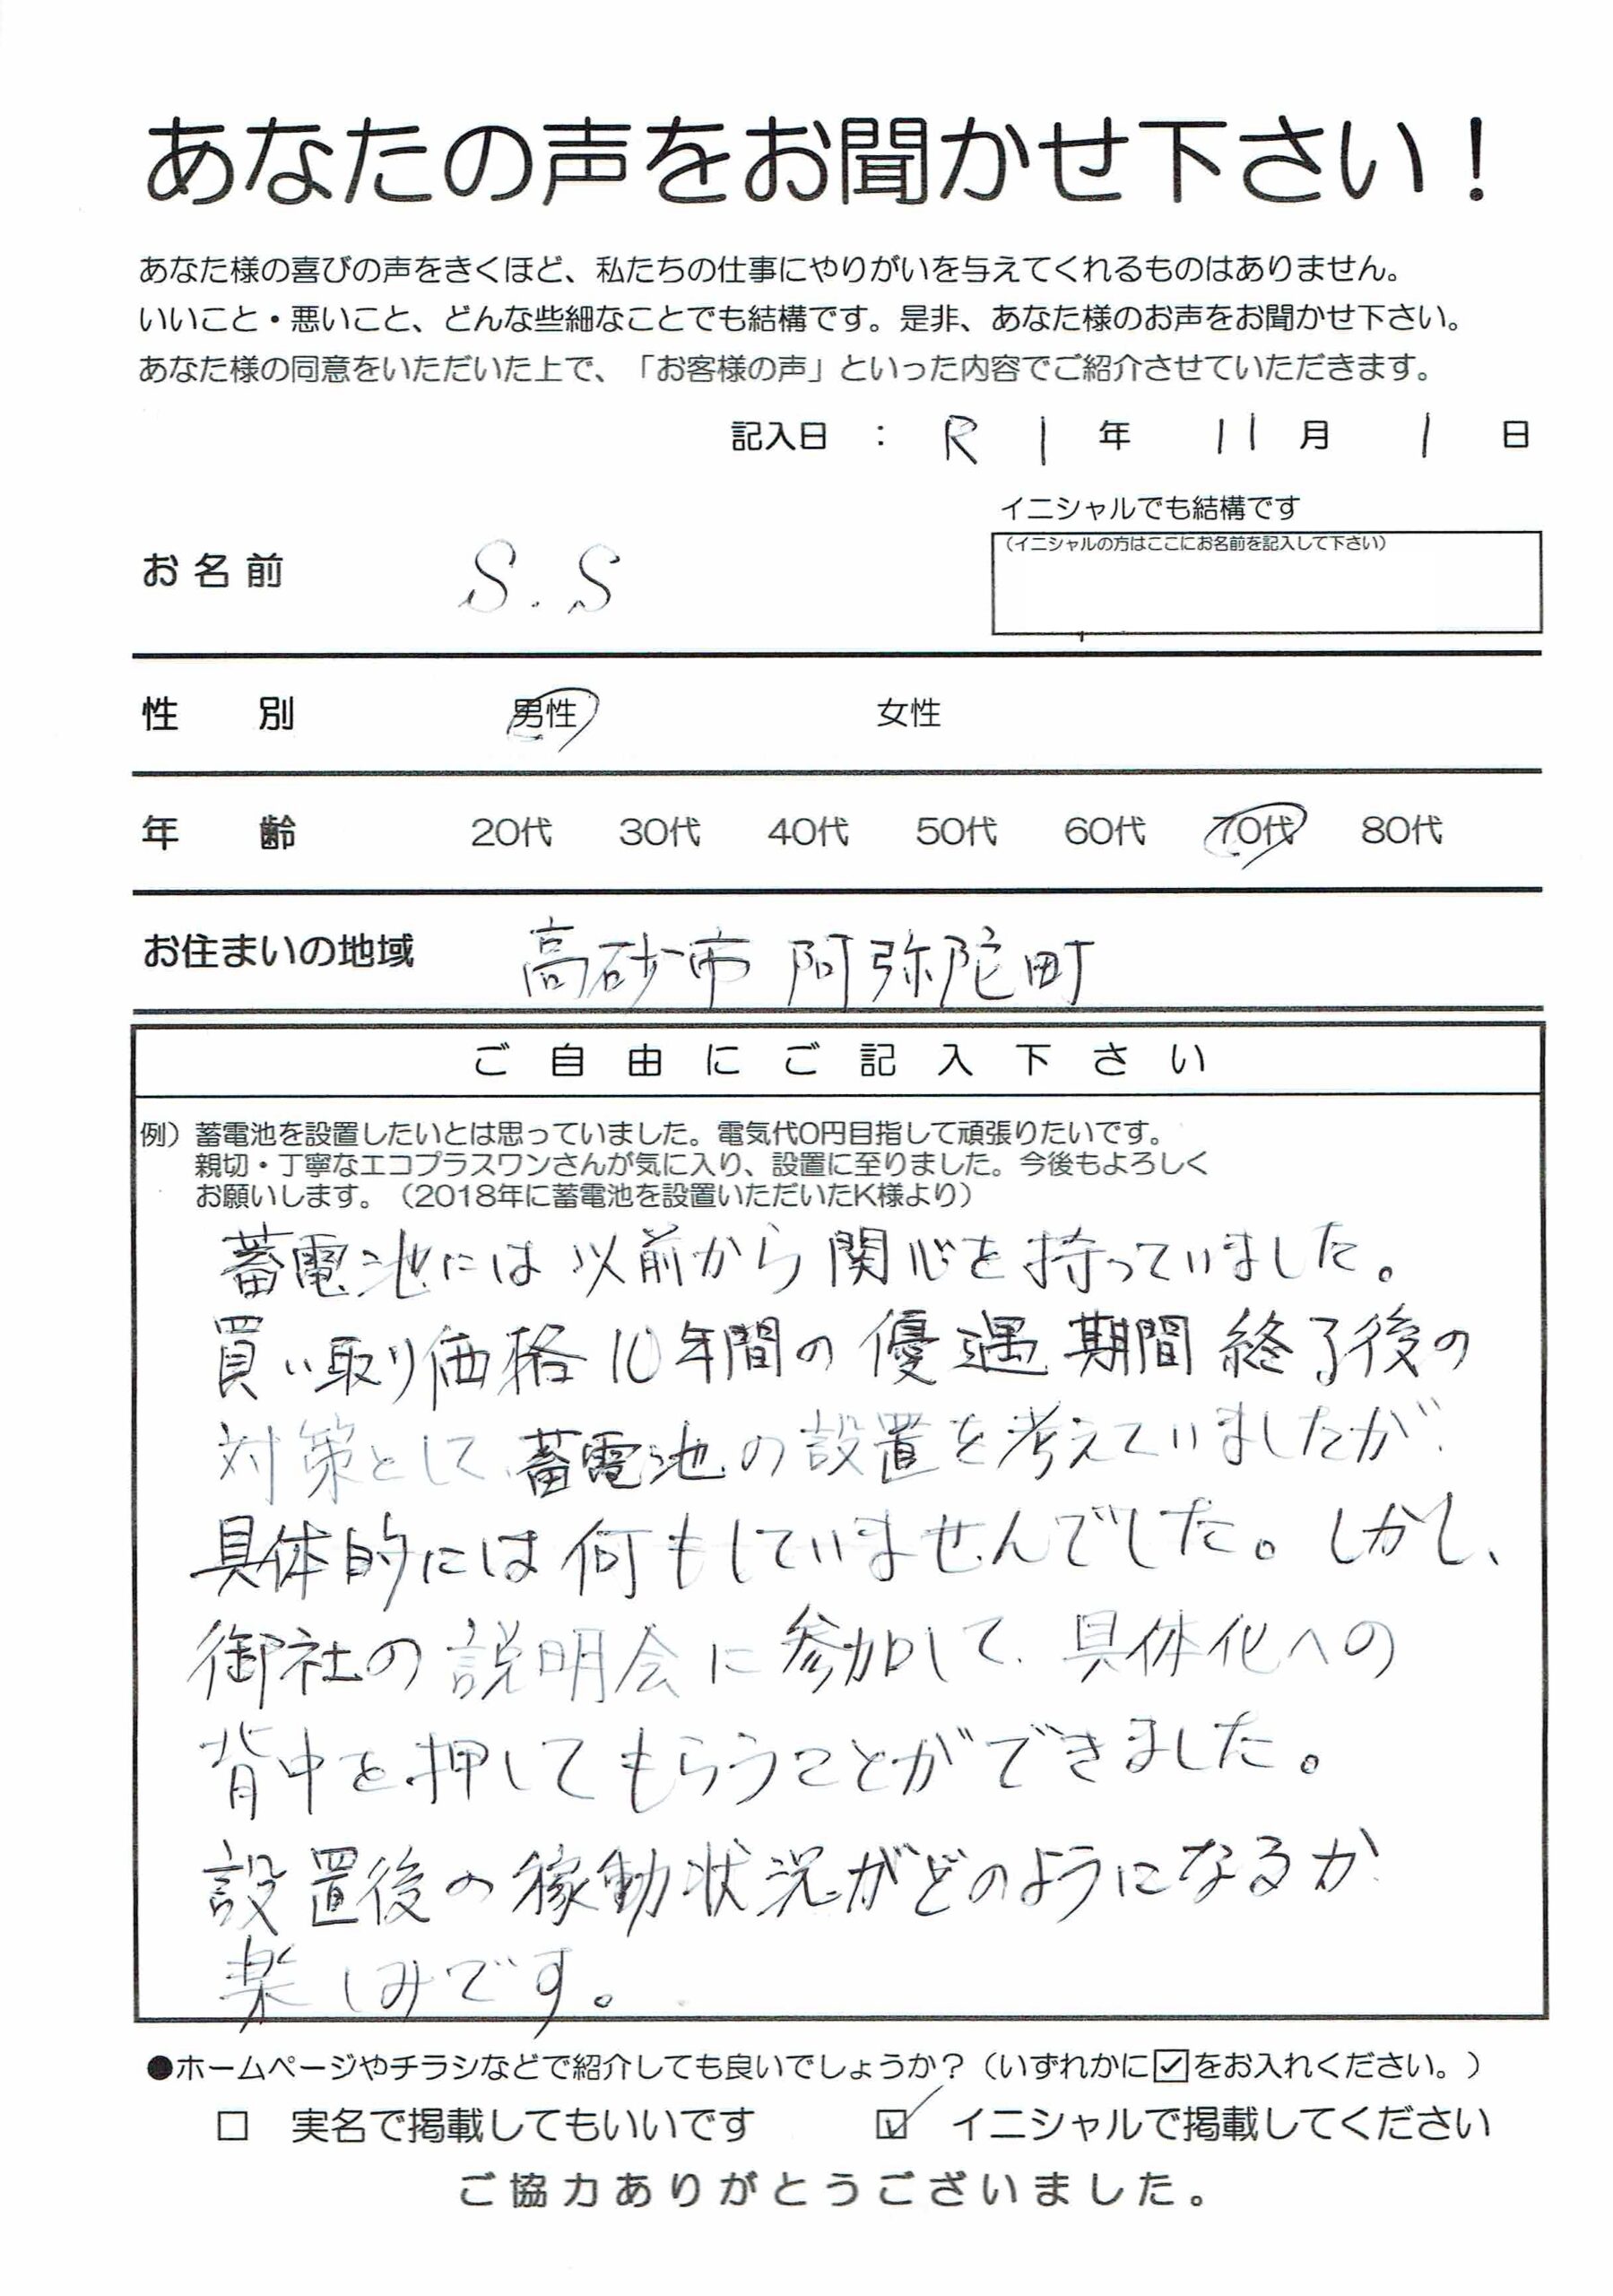 あなたの声をお聞かせ下さい！
あなた様の喜びの声をきくほど、私たちの仕事にやりがいを与えてくれるものはありません。
いいこと・悪いこと、どんな些細なことでも結構です。是非、あなた様のお声をお聞かせ下さい。
あなた様の同意をいただいた上で、「お客様の声」といった内容でご紹介させていただきます。
記入日 : R 1 年 11 月 1 日
イニシャルでも結構です
(イニシャルの方はここにお名前を記入して下さい)
お名前 S.S
性別 男性 女性
年齢 20代 30代 40代 50代 60代 70代 80代
お住まいの地域 高砂市 阿弥陀町
ご自由にご記入下さい
例）蓄電池を設置したいとは思っていました。電気代0円目指して頑張りたいです。
親切・丁寧なエコプラスワンさんが気に入り、設置に至りました。今後もよろしく
お願いします。（2018年に蓄電池を設置いただいたK様より）
蓄電池には以前から関心を持っていました。
買い取り価格10年間の優遇期間終了後の
対策として、蓄電池の設置を考えていましたが、
具体的には何もしていませんでした。しかし、
御社の説明会に参加して、具体化への
背中を押してもらうことができました。
設置後の稼動状況がどのようになるか
楽しみです。
●ホームページやチラシなどで紹介しても良いでしょうか？（いずれかに☑をお入れください。）
□ 実名で掲載してもいいです ☑ イニシャルで掲載してください
ご協力ありがとうございました。